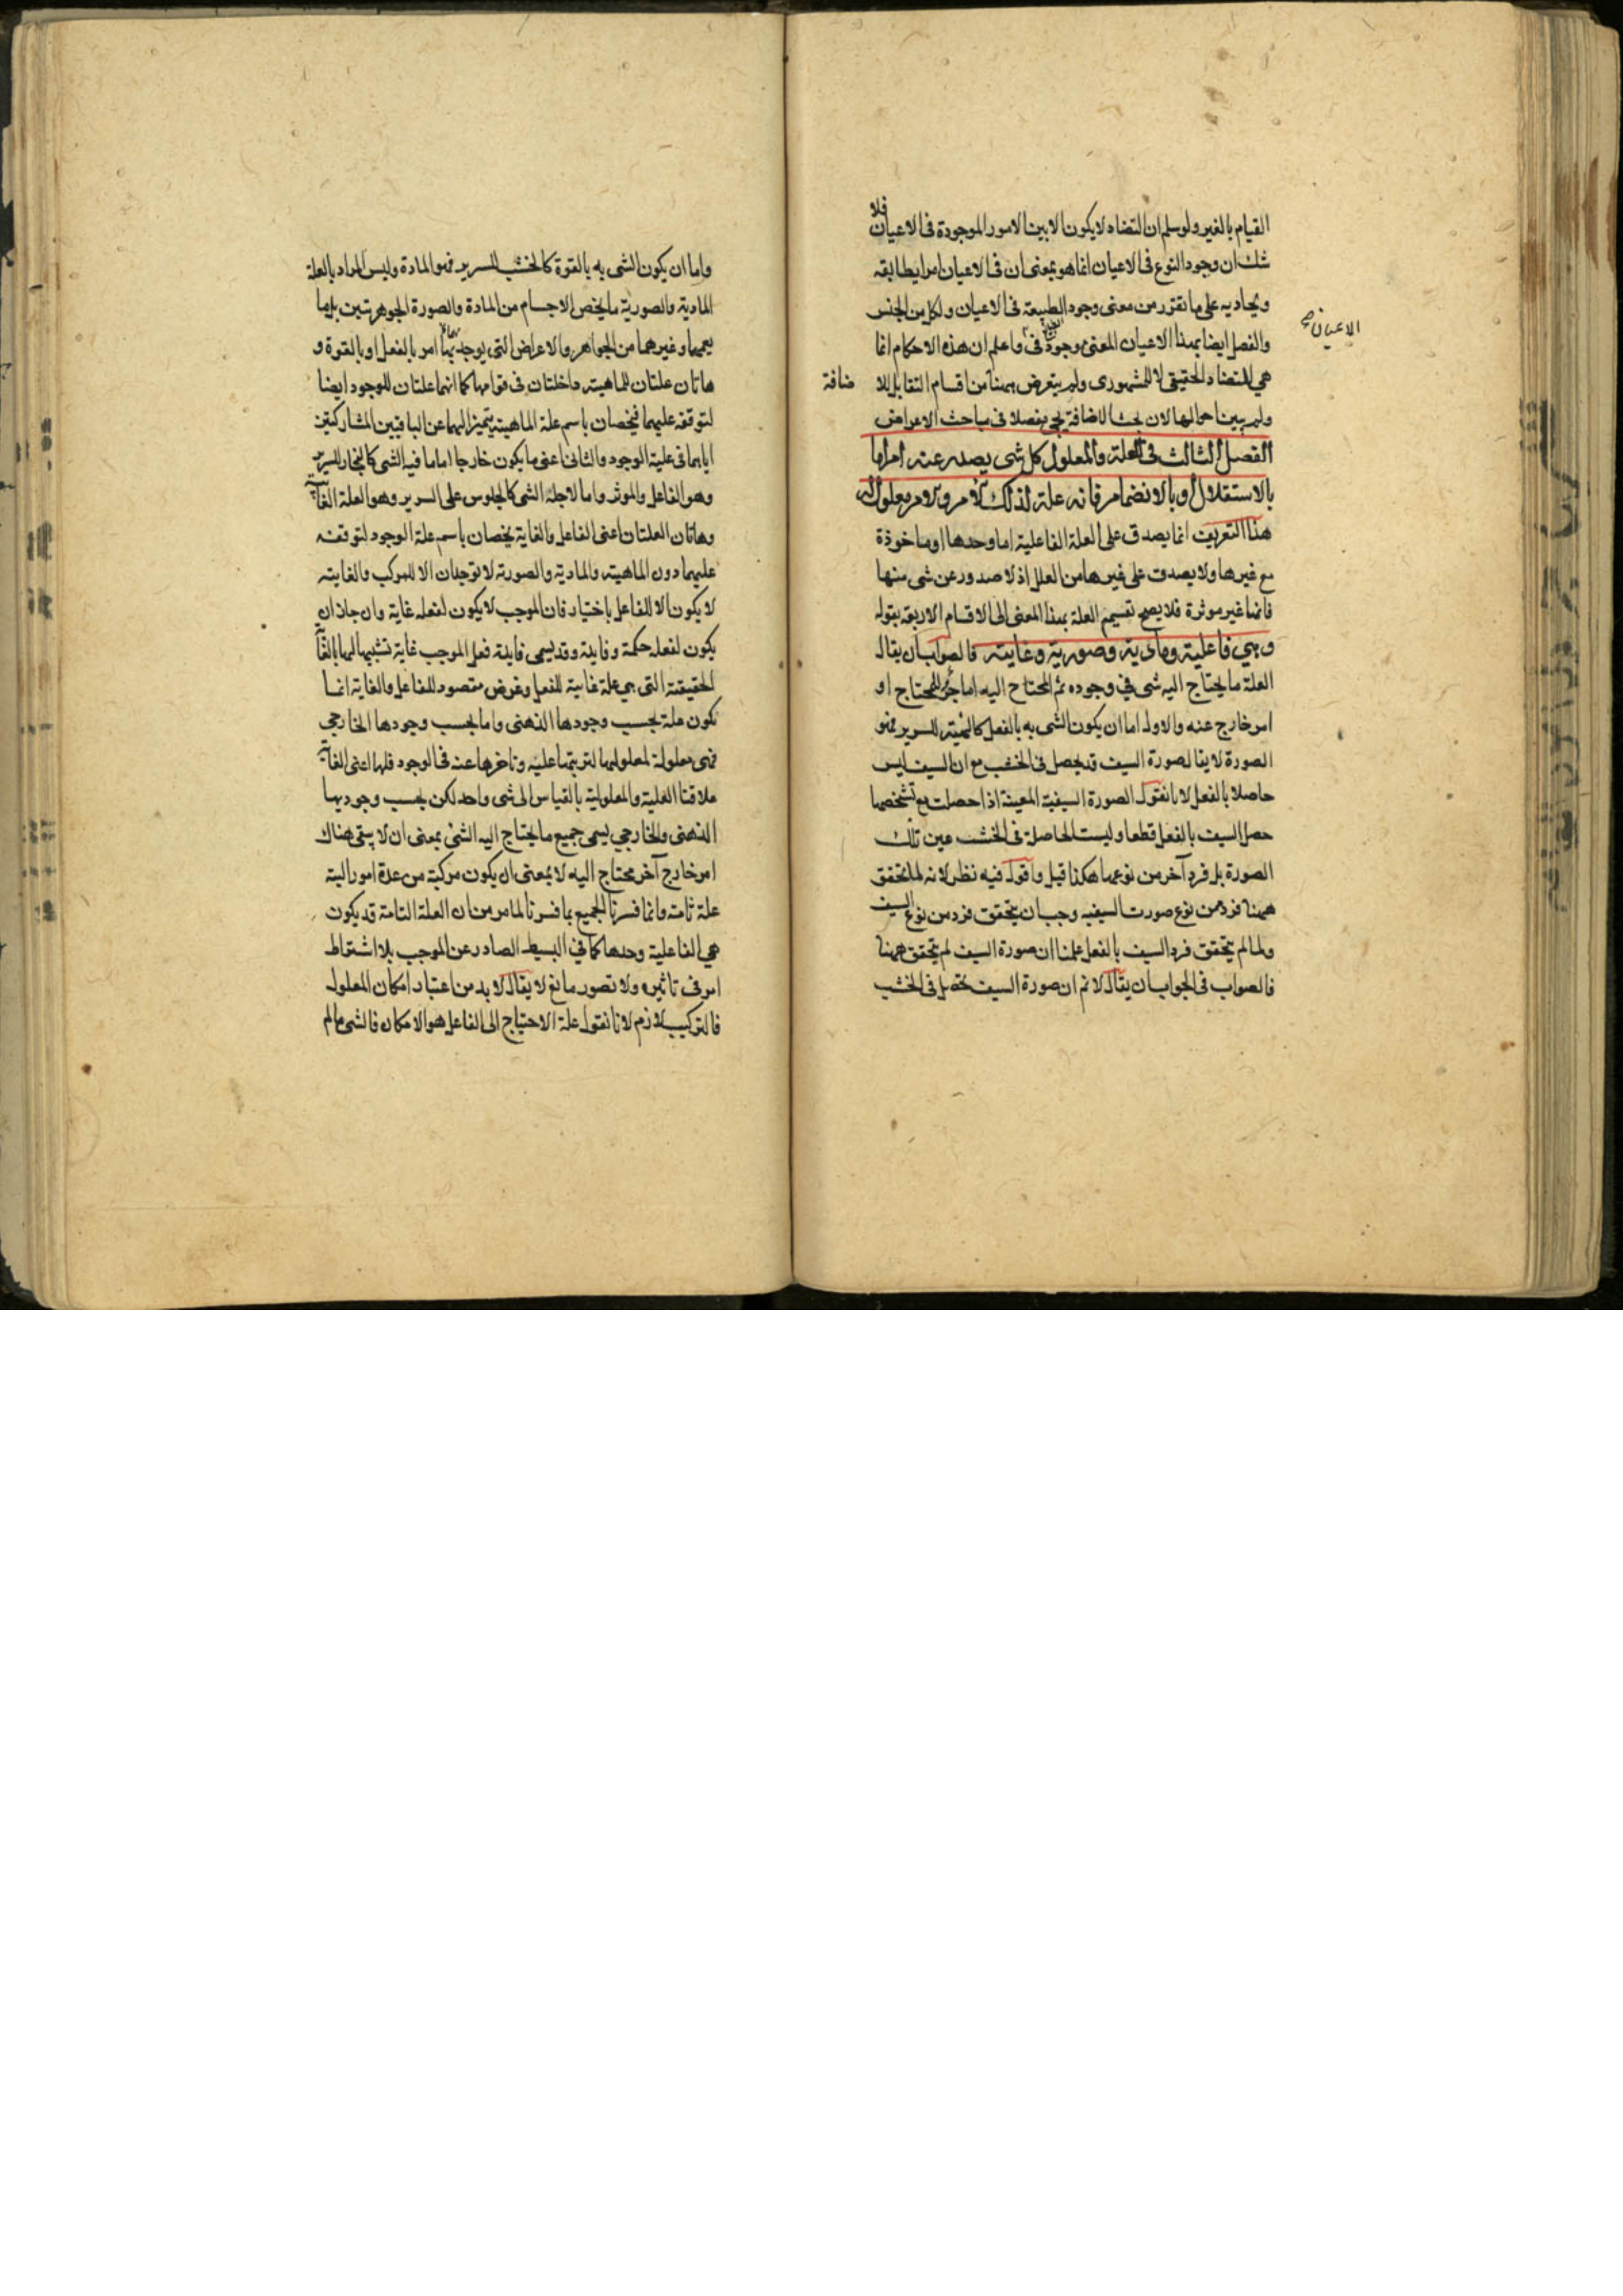 القيام بالغير ولو سلم ان التضاد لا يكون الا بين الامور الموجودة فى الاعيان فلا
شك ان وجود النوع فى الاعيان انما هو بمعنى ان فى الاعيان امرا يطابقه
ويحاديه على ما تقرر من معنى وجود الطبيعة فى الاعيان ولكل من الجنس
والفصل ايضا بهذا الاعيان المعنى وجود فى واعلم ان هذه الاحكام انما
الاعيان صح
هي للتضاد الحقيقى لا للمشهورى ولم يتعرض ههنا من اقسام التقابل للا
ضافة
ولم يبين احوالها لان بحث الاضافة يجئ مفصلا فى مباحث الاعراض
الفصل الثالث فى العلة والمعلول كل شى يصدر عنه امر اما
بالاستقلال او بالانضمام فانه علة لذلك الامر والامر معلول له
هذا التعريف انما يصدق على العلة الفاعلية اما وحدها او ماخوذة
مع غيرها ولا يصدق على غيرها من العلل اذ لا صدور عن شى منها
فانها غير موثرة فلا يصح تقسيم العلة بهذا المعنى الى الاقسام الاربعة بقوله
وهي فاعلية ومادية وصورية وغايته فالصواب ان يقال
العلة ما يحتاج اليه شى في وجوده ثم المحتاج اليه اما جزء للمحتاج او
امر خارج عنه والاول اما ان يكون الشى به بالفعل كالهيئة للسرير فهو
الصورة لا يقال صورة السيف قد يحصل فى الخشب مع ان السيف ليس
حاصلا بالفعل لانا نقول الصورة السيفية المعينة اذا حصلت مع تشخصها
حصل السيف بالفعل قطعا وليست الحاصلة فى الخشب عين تلك
الصورة بل فرد آخر من نوعها هكذا قيل واقول فيه نظر لانه لما تحقق
ههنا فرد من نوع صورت السيفيه وجب ان يتحقق فرد من نوع السيف
ولما لم يتحقق فرد السيف بالفعل علمنا ان صورة السيف لم يتحقق ههنا
فالصواب فى الجواب ان يقال لا نم ان صورة السيف تحصل فى الخشب
واما ان يكون الشى به بالقوة كالخشب للسرير فهو المادة وليس المراد بالعلة
المادية والصورية ما يخص الاجسام من المادة والصورة الجوهرتين بل ما
يعمهما وغيرهما من الجواهر والاعراض التى يوجد بها امر بالفعل او بالقوة و
هاتان علتان للماهية داخلتان فى قوامها كما انهما علتان للوجود ايضا
لتوقفه عليهما فيخصان باسم علة الماهية تتميزا لهما عن الباقيين المشاركتين
اياهما فى علية الوجود والثانى اعنى ما يكون خارجا اما ما فيه الشى كالنجار للسرير
وهو الفاعل والموثر واما لاجله الشى كالجلوس على السرير وهو العلة الغائية
وهاتان العلتان اعنى الفاعل والغاية يخصان باسم علة الوجود لتوقفه
عليهما دون الماهية والمادية والصورة لا توجدان الا للمركب والغاية
لا يكون الا للفاعل باختيار فان الموجب لا يكون لفعله غاية وان جاز ان
يكون لفعله حكمة وفايدة وقد يسمى فايدة فعل الموجب غاية تشبيها لها بالغاية
الحقيقة التى هي علة غايية للفعل وغرض مقصود للفاعل والغاية انما
تكون علة بحسب وجودها الذهنى واما بحسب وجودها الخارجي
فهى معلولة لمعلولها لترتبها عليه وتاخرها عنه فى الوجود فلها اعنى الغاية
علاقتا العلية والمعلولية بالقياس الى شى واحد لكن بحسب وجوديها
الذهنى والخارجي يسمى جميع ما يحتاج اليه الشئ بمعنى ان لا يبقى هناك
امر خارج آخر محتاج اليه لا بمعنى ان يكون مركبة من عدة امور البتة
علة تامة وانما فسرنا الجميع بما فسرنا لما مر من ان العلة التامة قد يكون
هي الفاعلية وحدها كما في البسيط الصادر عن الموجب بلا اشتراط
امر فى تاثيره ولا تصور مانع لا يقال لا بد من اعتبار امكان المعلول
فالتركيب لازم لانا نقول علة الاحتياج الى الفاعل هو الامكان فالشى ما لم